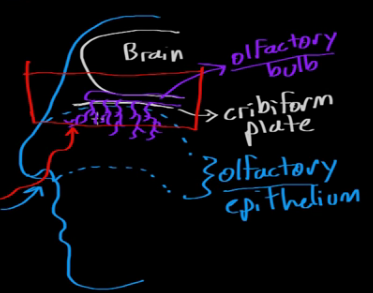 Brain
olfactory
bulb
cribiform
plate
olfactory
epithelium